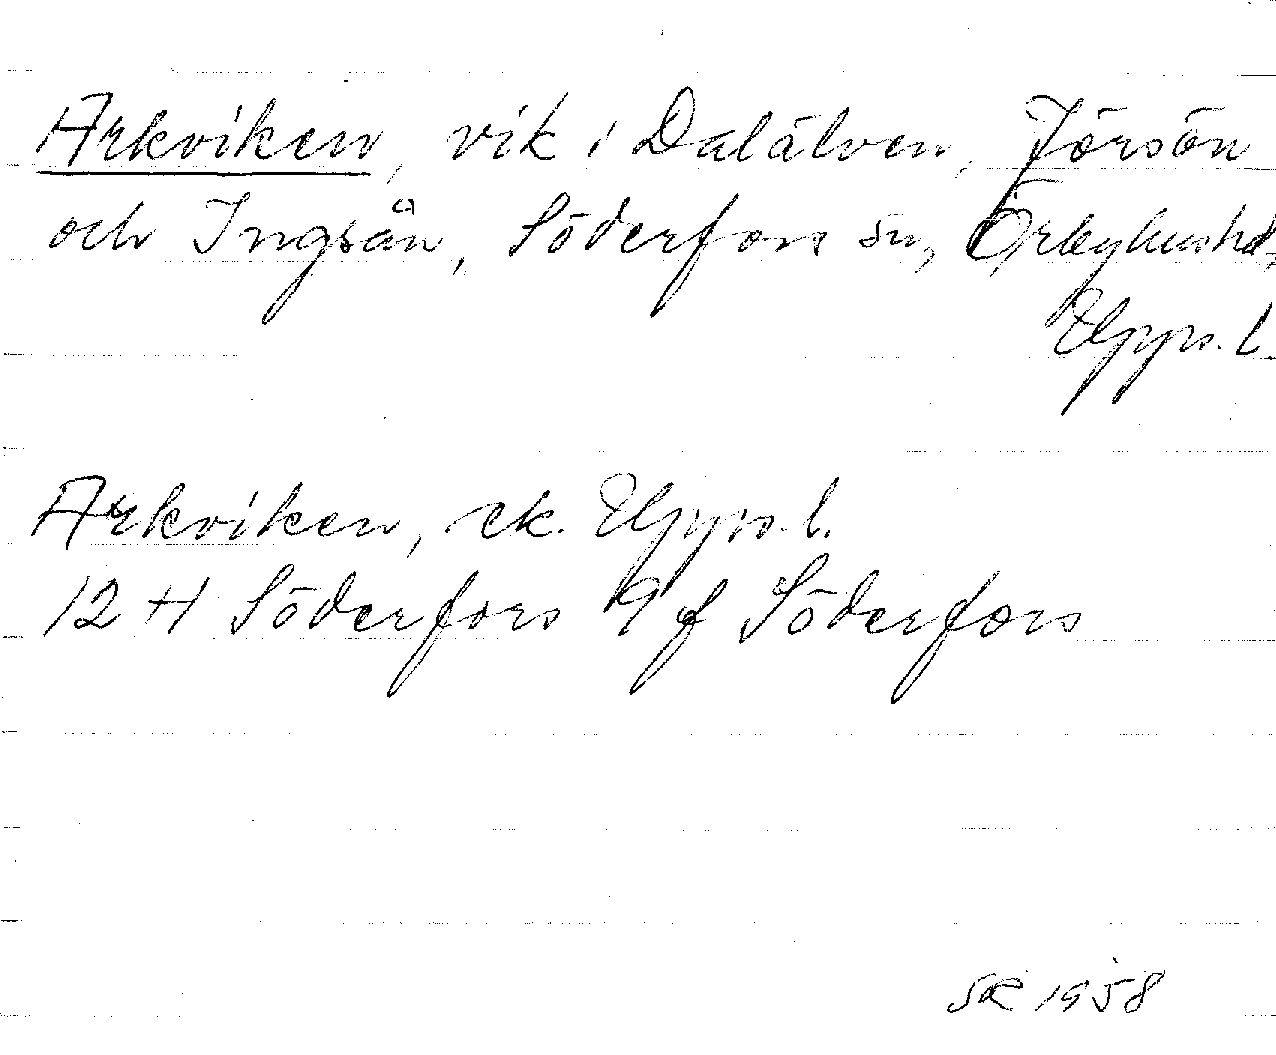 Arkviken, vik i Dalälven, Jörsön
och Ingsån, Söderfors sn, Örbyhushd,
Upps. l.
Arkviken, ek. Upps. l.
12 H Söderfors 9 f Söderfors
1958